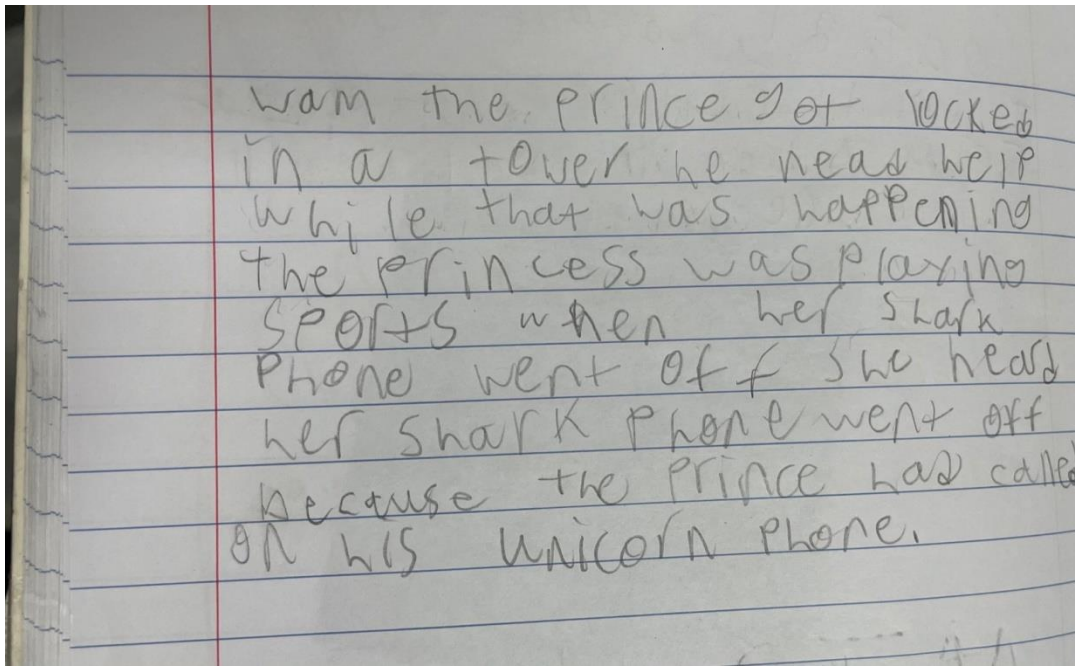 wam the prince got locked
in a tower he nead help
while that was happening
the princess was playing
sports when her shark
phone went off she heard
her shark phone went off
because the prince had called
on his unicorn phone.